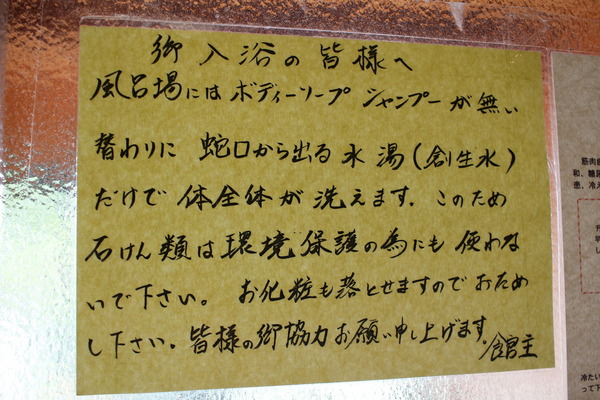 御入浴の皆様へ
風呂場にはボディーソープ シャンプーが無い
替わりに 蛇口から出る水湯(創生水)
だけで 体全体が 洗えます. このため
石けん類は環境保護の為にも 使わな
いで下さい。 お化粧も落とせますのでおため
し下さい。皆様の御協力お願い申し上げます. 館主
筋肉
和、糖
患、冷え
冷たい
って下